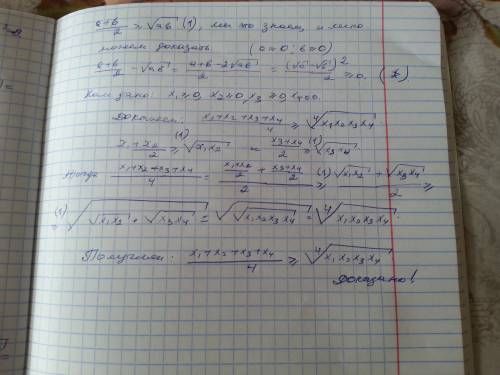 (a+b)/2 ≥ √ab (1), мы это знаем, и легко
можем доказать. (a ≥ 0; b ≥ 0)
(a+b)/2 - √ab = (a+b-2√ab)/2 = (√a-√b)²/2 ≥ 0.
Нам дано: x₁ ≥ 0, x₂ ≥ 0, x₃ ≥ 0, x₄ ≥ 0.
Докажем: (x₁+x₂+x₃+x₄)/4 ≥ ⁴√x₁x₂x₃x₄
(x₁+x₂)/2 ≥ (1) √x₁x₂ и (x₃+x₄)/2 ≥ (1) √x₃x₄
Тогда (x₁+x₂+x₃+x₄)/4 = ((x₁+x₂)/2 + (x₃+x₄)/2)/2 ≥ (1) (√x₁x₂ + √x₃x₄)/2 ≥
≥ (1) √(√x₁x₂ · √x₃x₄) = √√x₁x₂x₃x₄ = ⁴√x₁x₂x₃x₄
Получили: (x₁+x₂+x₃+x₄)/4 ≥ ⁴√x₁x₂x₃x₄
доказано!